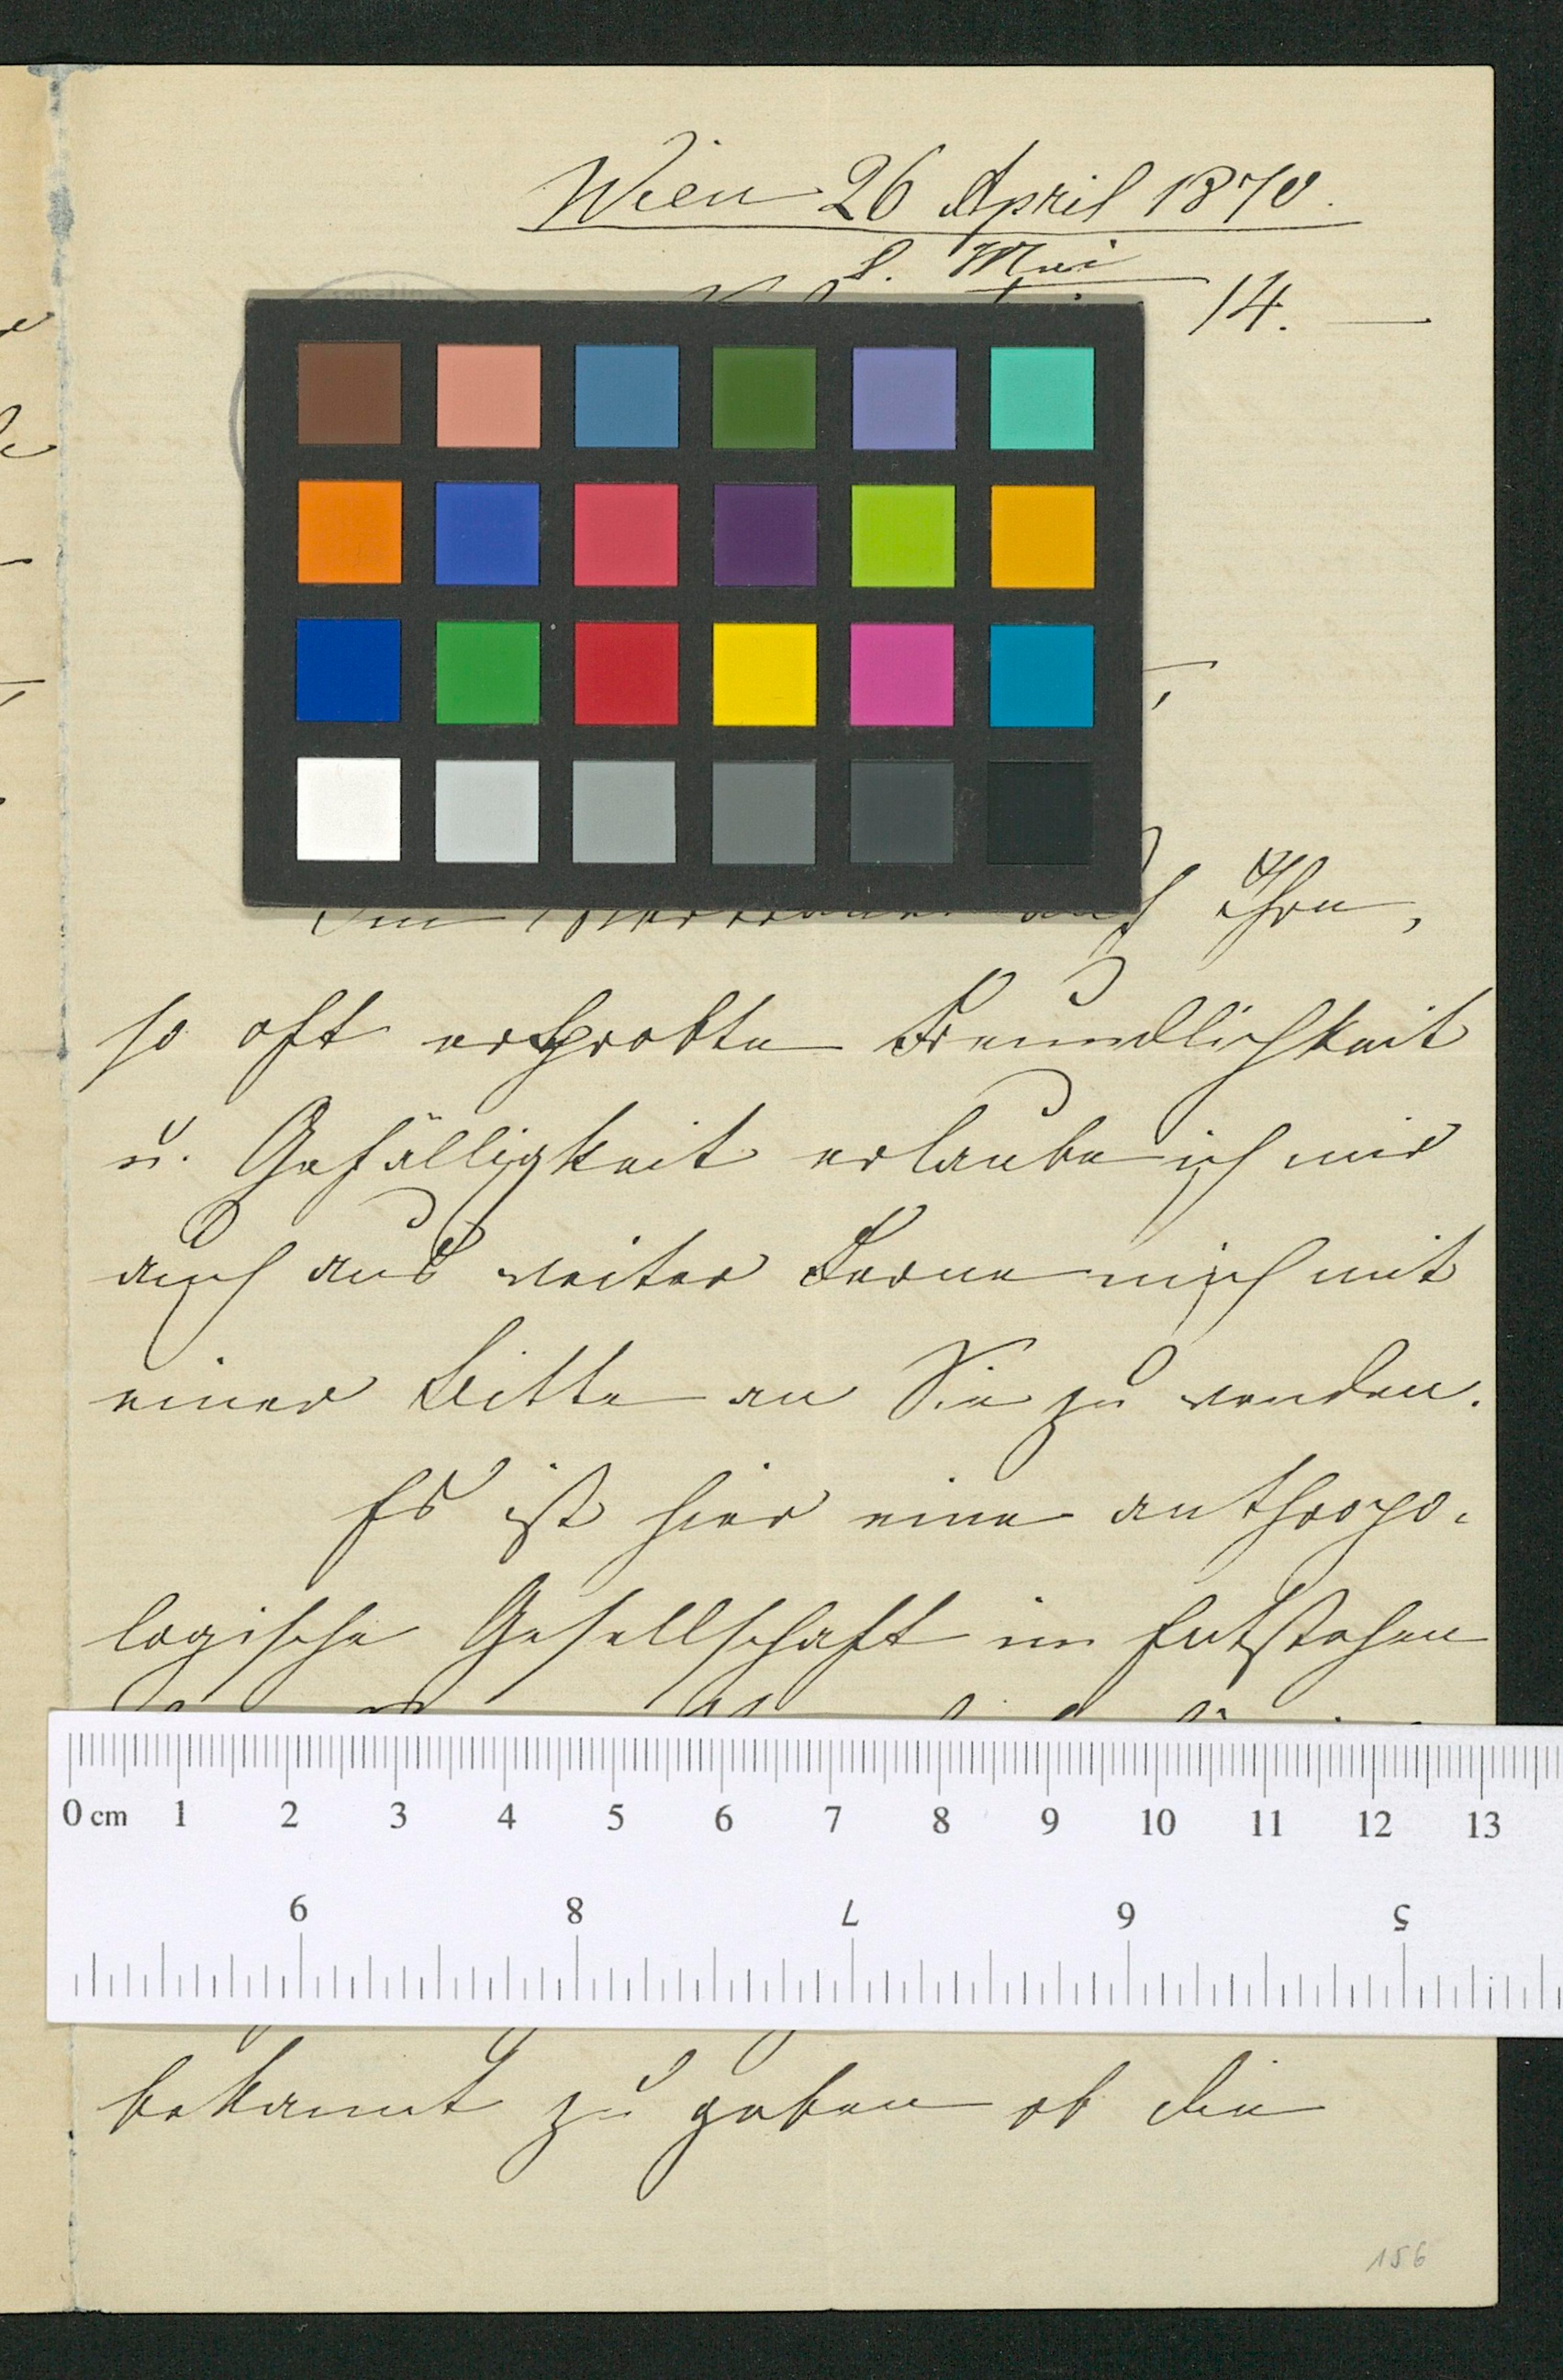 Wien 26 April 1870.
8. Mai
14.
Im Vertrauen auf Ihre,
so oft erprobte Freundlichkeit
u. Gefälligkeit erlaube ich mir
auch aus weiter Ferne mich mit
einer Bitte an Sie zu wenden.
Es ist hier eine anthropo-
logische Gesellschaft im Entstehen
0 cm 1 2 3 4 5 6 7 8 9 10 11 12 13
9 8 7 6 5
bekannt zu geben ob die
156